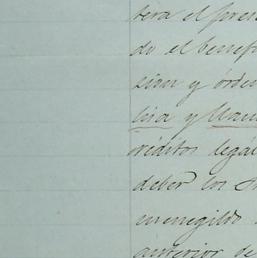 tera el pres
do el benef
sian y órde
lina y Mau
créditos legal
deber los Su
menegildo
anterior de